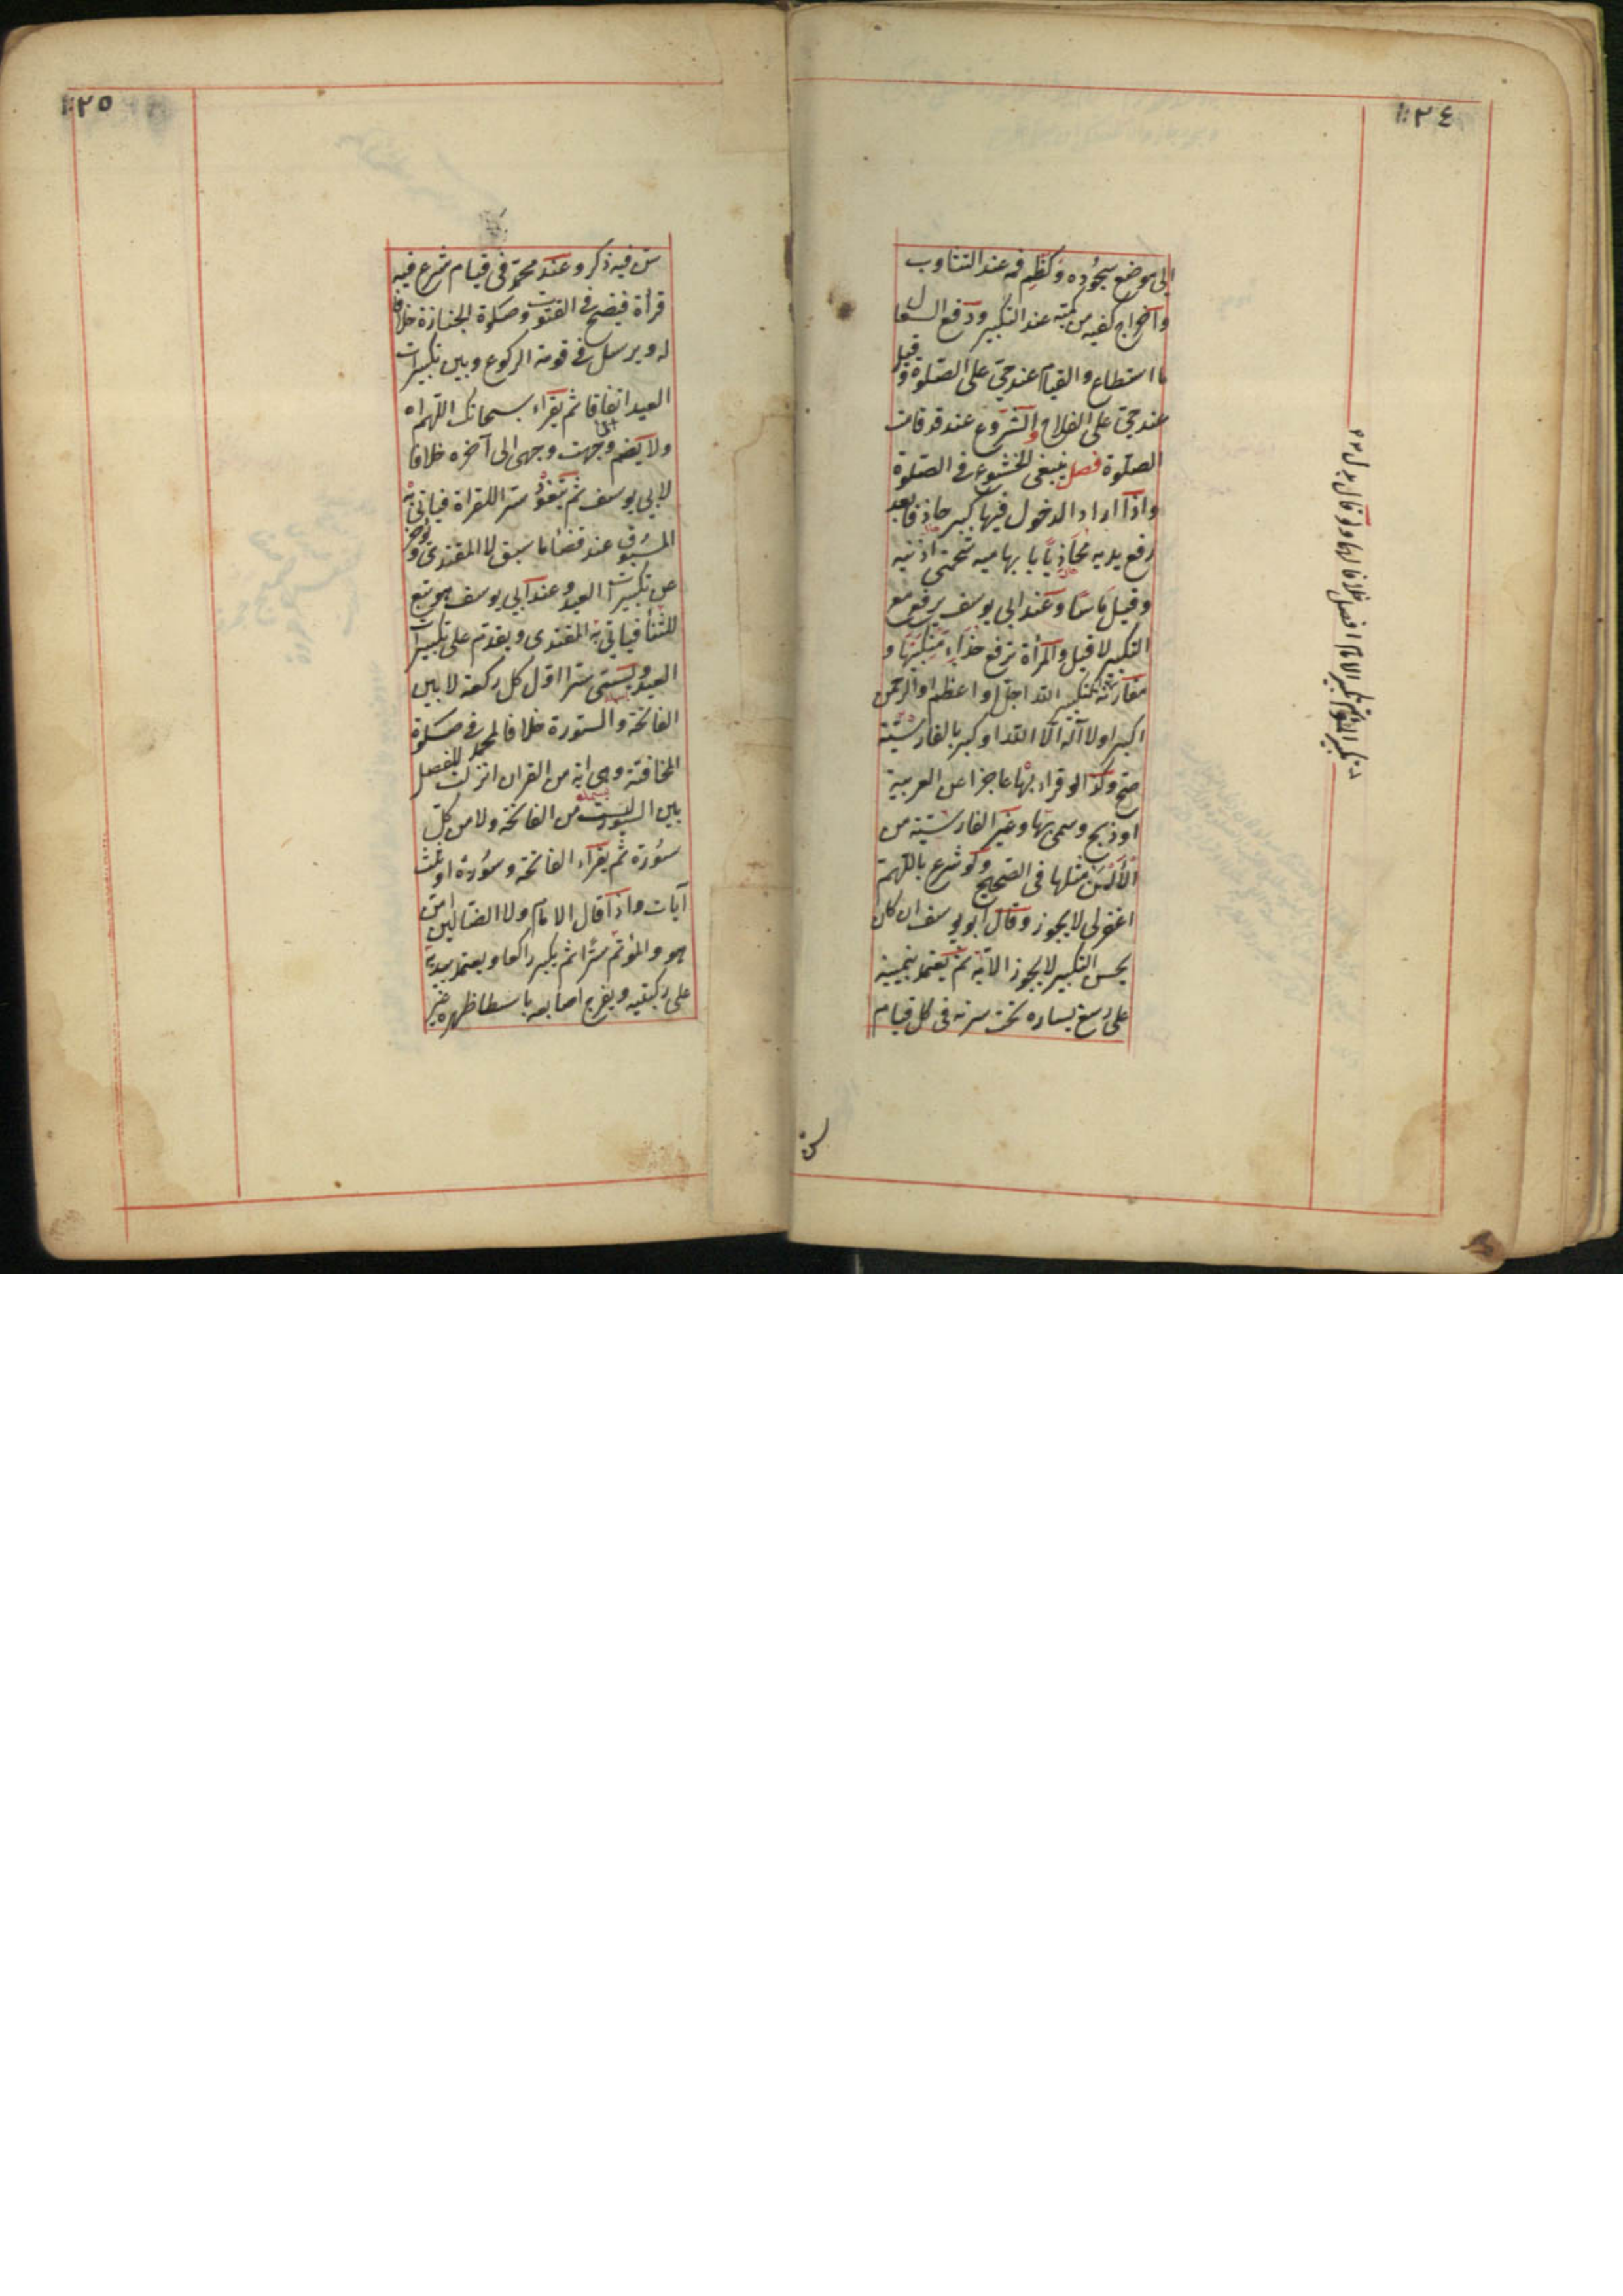 ١٢٤
الى موضع سجوده وكظم فمه عند التثاوب
واخراج كفيه من كميه عند التكبير ودفع السعال
ما استطاع والقيام عند حى على الصلوة وقيل
عند حى على الفلاح والشروع عند قد قامت
الصلوة فصل ينبغى الخشوع فى الصلوة
واذا اراد الدخول فيها كبر حاذفا بعد
رفع يديه محاذيا بابهاميه شحمتى اذنيه
وقيل ماسا وعند ابى يوسف يرفع مع
التكبير لا قبل والمرأة ترفع حذاء منكبيها و
مقارنة تكبير
الله اجل او اعظم او الرحمن
اكبر او لا اله الا الله او كبر بالفارسية
صح وكذا لو قراء بها عاجزا عن العربية
او ذبح وسمى بها وغير الفارسية من
الألسن مثلها فى الصحيح ولو شرع باللهم
اغفرلى لا يجوز وقال ابو يوسف ان كان
يحسن التكبير لا يجوز الا به ثم يعتمد بيمينه
على رسغ يساره تحت سرته فى كل قيام
سن
١٢٥
سن فيه ذكر وعند محمد فى قيام شرع فيه
قرأة فيضع فى القنوت وصلوة الجنازة خلافا
له ويرسل فى قومة الركوع وبين تكبيرات
العيد اتفاقا ثم يقراء سبحانك اللهم اه
ولا يضم وجهت وجهى الى آخره خلافا
لابى يوسف ثم يتعوذ سرا للقراة فيأتى به
المسبوق عند قضاء ما سبق لا المقتدى ويؤخر
عن تكبيرات العيد وعند ابى يوسف هو تبع
للثنأ فيأتى به المقتدى ويقدم على تكبيرات
العيد ويسمى سرا اول كل ركعة لا بين
الفاتحة والسورة خلافا لمحمد فى صلوة
المخافتة وهى اية من القران انزلت للفصل
بين السور ليست من الفاتحة ولا من كل
سورة ثم يقراء الفاتحة وسورة او ثلث
آيات واذا قال الامام ولا الضالين امن
هو والمؤتم سرا ثم يكبر راكعا ويعتمد بيديه
على ركبتيه ويفرج اصابعه باسطا ظهره غير